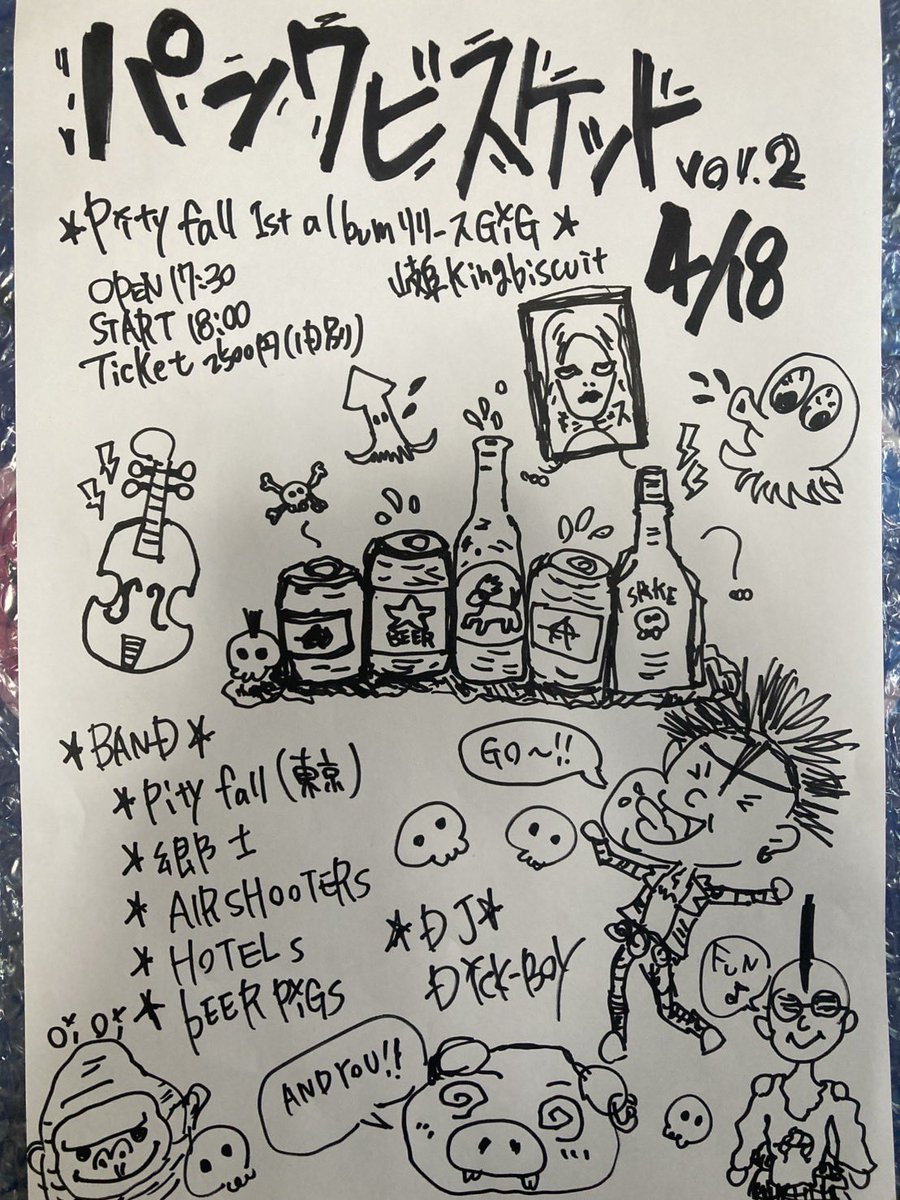 パンクビスケット vol.2
4/18
*Pity fall 1st albumリリースGiG*
岐阜Kingbiscuit
OPEN 17:30
START 18:00
Ticket 2500円(1D別)
BEER
SAKE
*BAND*
*Pity fall(東京)
*郷士
*AIRSHOOTERS
*HOTELS
*bEER PiGS
*DJ*
Dick-BOY
GO〜!!
FUN♪
Oi Oi
AND YOU!!